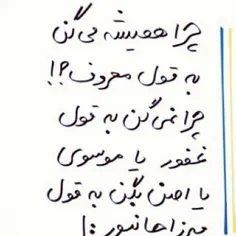 چرا همیشه می گن
به قول معروف؟!!
چرا نمی گن به قول
غفور یا موسوی
یا اصن بگن به قول
میرزاخانپور :|